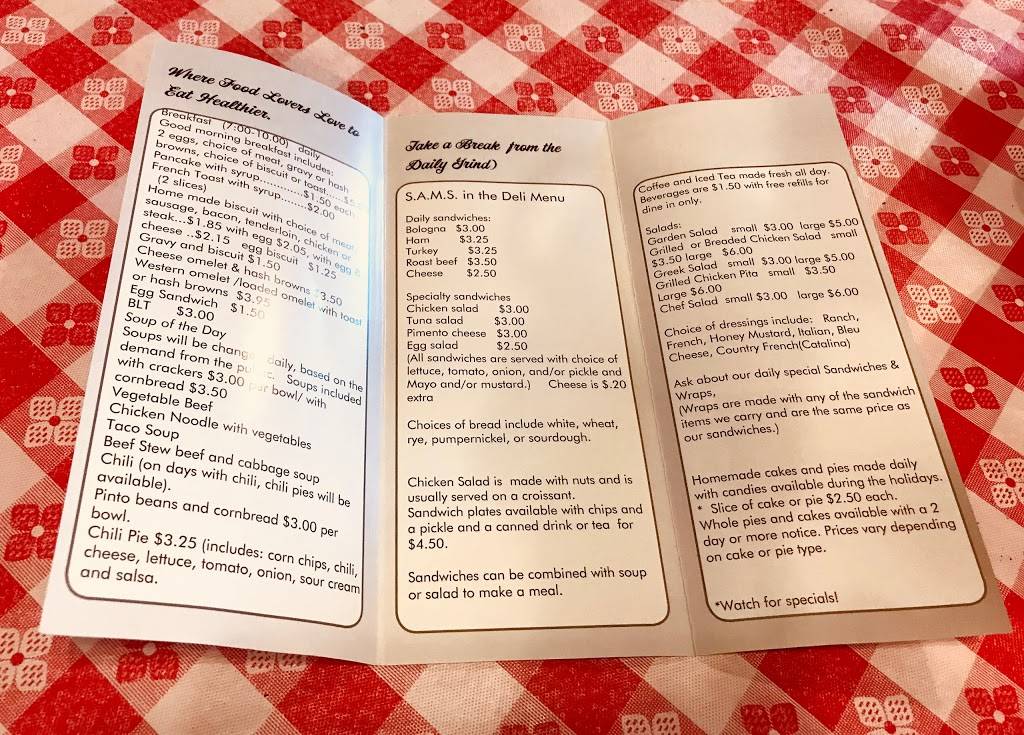 Where Food Lovers Love to
Eat Healthier.
Breakfast (7:00-10:00) daily
Good morning breakfast includes:
2 eggs, choice of meat, gravy or hash
browns, choice of biscuit or toast.....$5.
Pancake with syrup.............$1.50 each
French Toast with syrup........$2.00
(2 slices)
Home made biscuit with choice of meat
sausage, bacon, tenderloin, chicken or
steak...$1.85 with egg $2.05, with egg &
cheese ..$2.15 egg biscuit $1.25
Gravy and biscuit $1.50
Cheese omelet & hash browns 3.50
Western omelet /loaded omelet with toast
or hash browns $3.95
Egg Sandwich $1.50
BLT $3.00
Soup of the Day
Soups will be daily, based on the
demand from the Soups included
with crackers $3.00 per bowl/ with
cornbread $3.50
Vegetable Beef
Chicken Noodle with vegetables
Taco Soup
Beef Stew beef and cabbage soup
Chili (on days with chili, chili pies will be
available).
Pinto beans and cornbread $3.00 per
bowl.
Chili Pie $3.25 (includes: corn chips, chili,
cheese, lettuce, tomato, onion, sour cream
and salsa.
Take a Break from the
Daily Grind)
S.A.M.S. in the Deli Menu
Daily sandwiches:
Bologna $3.00
Ham $3.25
Turkey $3.25
Roast beef $3.50
Cheese $2.50
Specialty sandwiches
Chicken salad $3.00
Tuna salad $3.00
Pimento cheese $3.00
Egg salad $2.50
(All sandwiches are served with choice of
lettuce, tomato, onion, and/or pickle and
Mayo and/or mustard.) Cheese is $.20
extra
Choices of bread include white, wheat,
rye, pumpernickel, or sourdough.
Chicken Salad is made with nuts and is
usually served on a croissant.
Sandwich plates available with chips and
a pickle and a canned drink or tea for
$4.50.
Sandwiches can be combined with soup
or salad to make a meal.
Coffee and Iced Tea made fresh all day.
Beverages are $1.50 with free refills for
dine in only.
Salads:
Garden Salad small $3.00 large $5.00
Grilled or Breaded Chicken Salad small
$3.50 large $6.00
Greek Salad small $3.00 large $5.00
Grilled Chicken Pita small $3.50
Large $6.00
Chef Salad small $3.00 large $6.00
Choice of dressings include: Ranch,
French, Honey Mustard, Italian, Bleu
Cheese, Country French(Catalina)
Ask about our daily special Sandwiches &
Wraps,
(Wraps are made with any of the sandwich
items we carry and are the same price as
our sandwiches.)
Homemade cakes and pies made daily
with candies available during the holidays.
* Slice of cake or pie $2.50 each.
Whole pies and cakes available with a 2
day or more notice. Prices vary depending
on cake or pie type.
*Watch for specials!